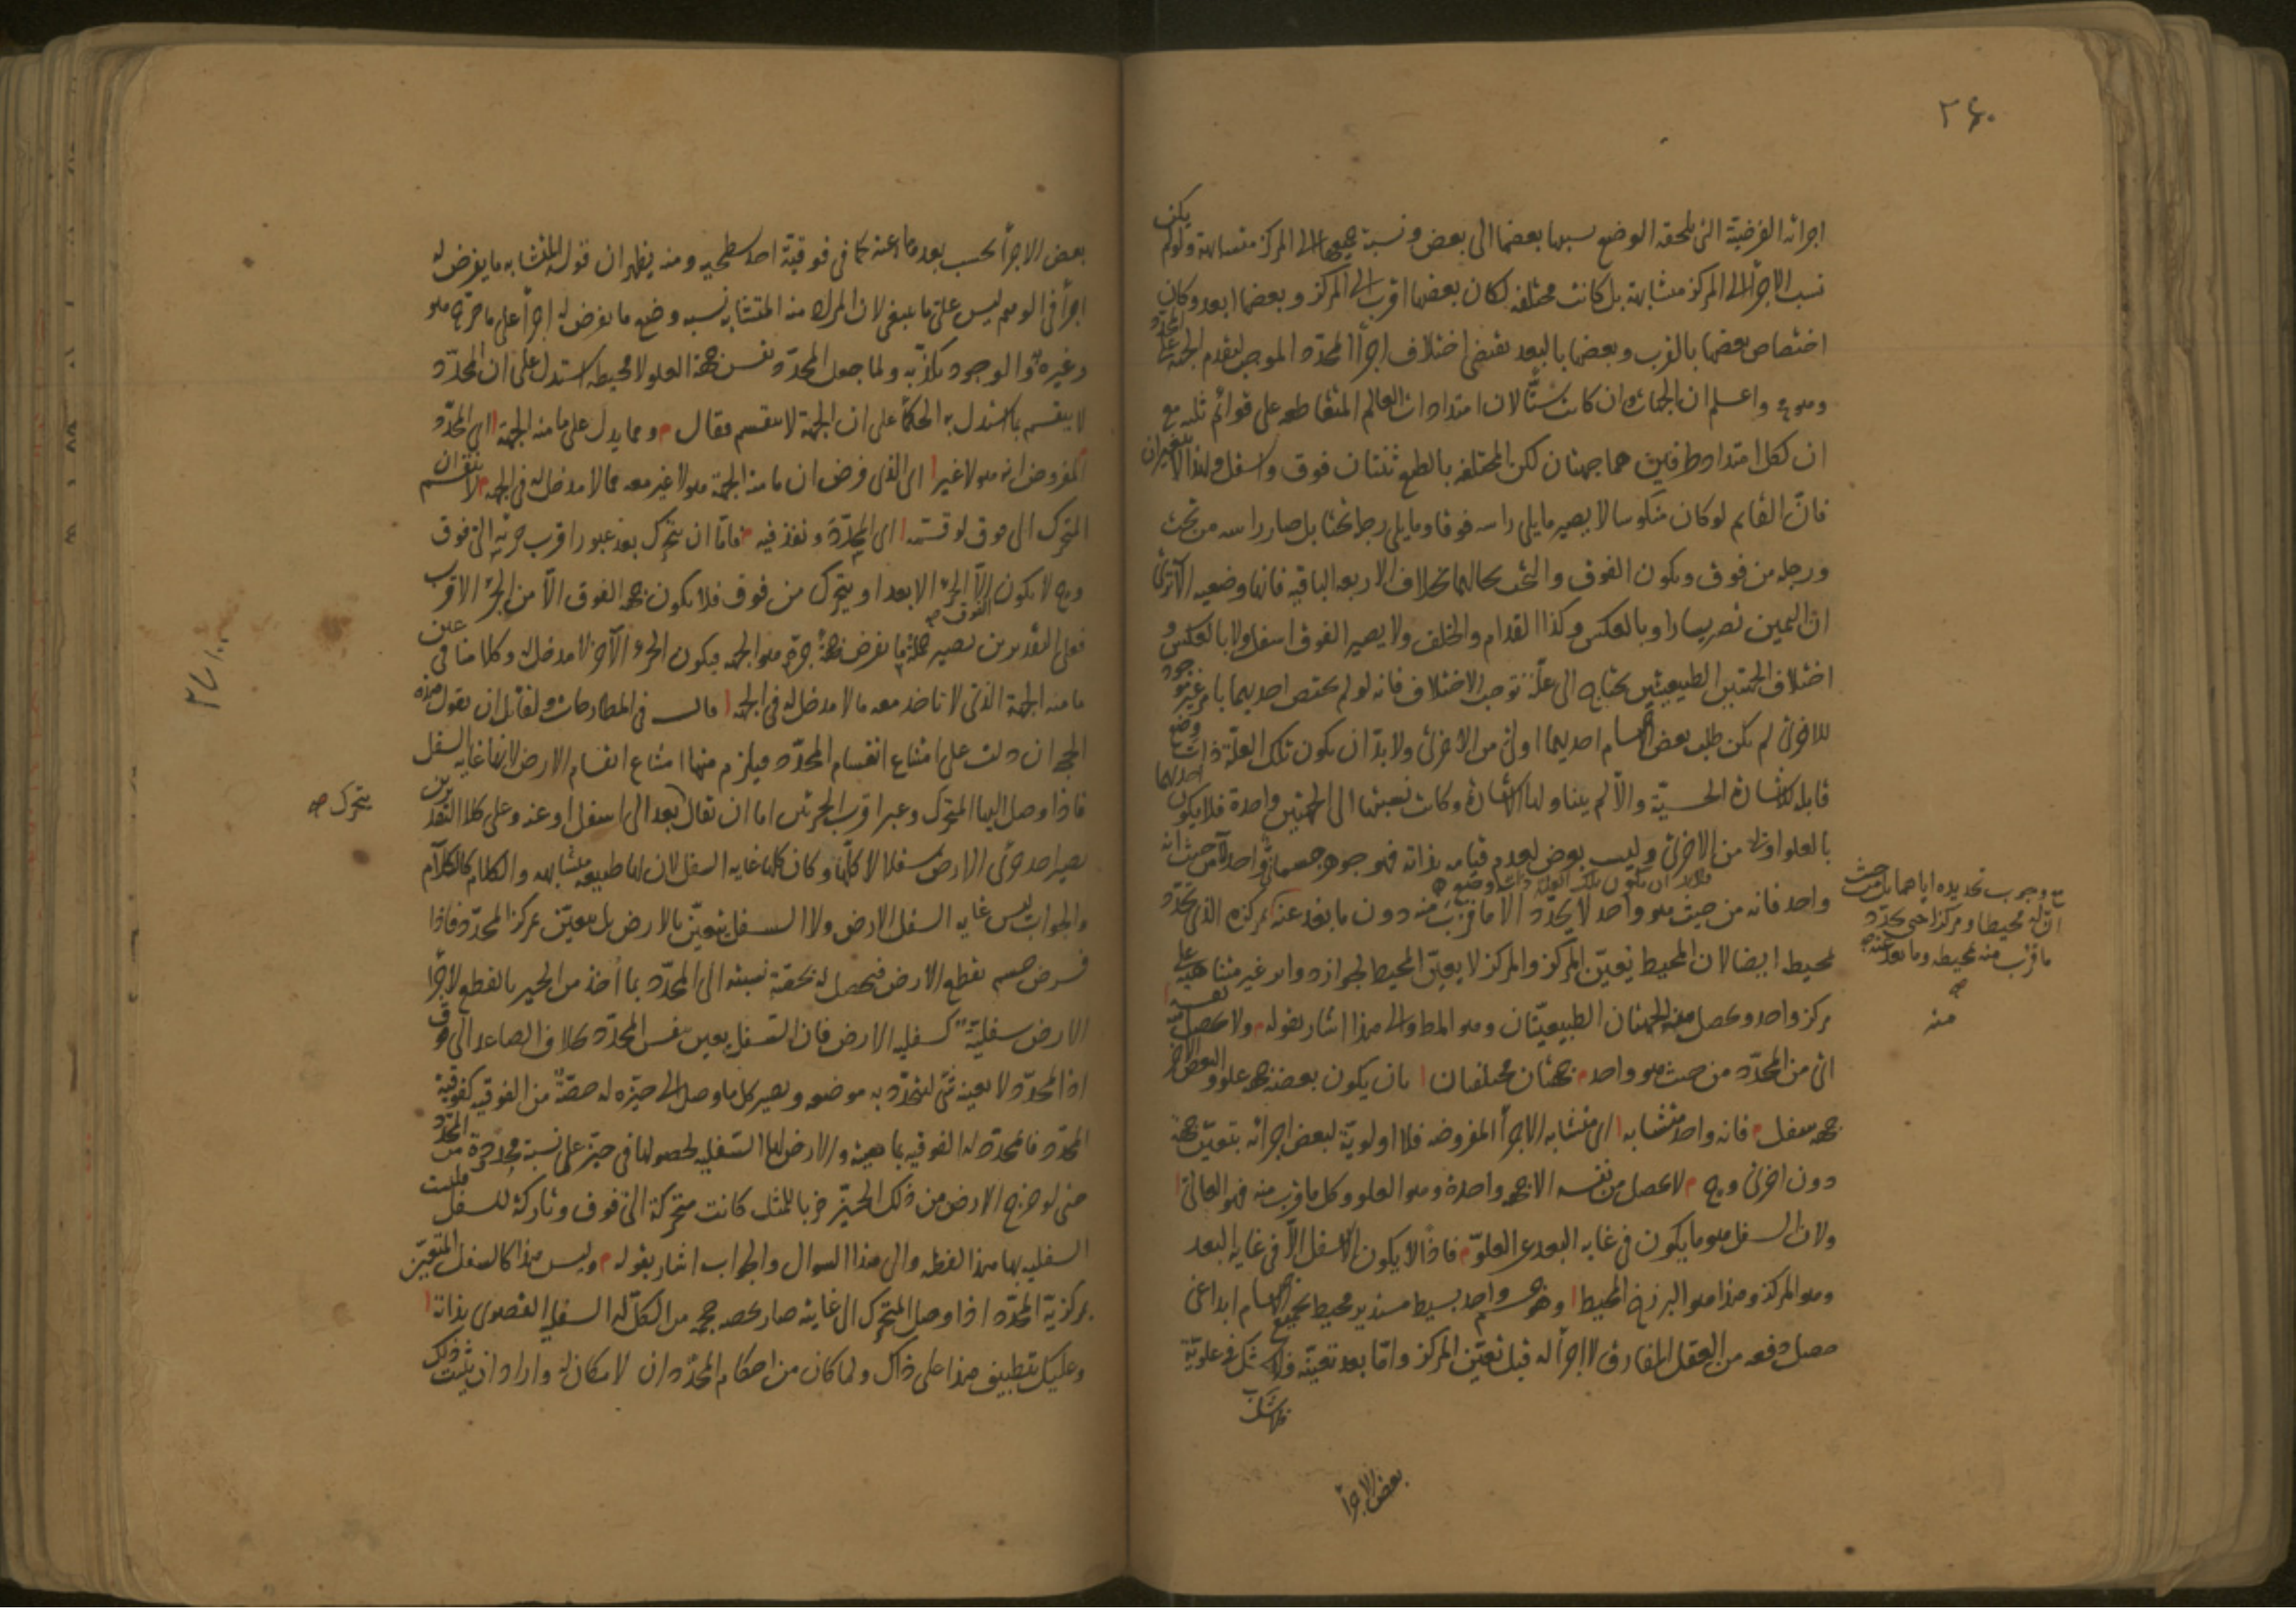 ٢٤٠
اجزائه الفرضية التى تلحقه الوضع نسبها بعضها الى بعض ونسبة جميعها الى المركز متشابهة ولو لم يكن
نسب الاجزاء الى المركز متشابهة بل كانت مختلفة لكان بعضها اقرب الى المركز وبعضها ابعد وكان
اختصاص بعضها بالقرب وبعضها بالبعد يقتضى اختلاف اجزاء المحدّد الموجب لتقدم الجهة على المحدّد
واعلم ان الجهات وان كانت ستًّا لان امتدادات العالم المتقاطعة على قوائم ثلثة مع
ان لكل امتداد طرفين هما جهتان لكن المختلفة بالطبع ثنتان فوق واسفل ولهذا لا يتغيران
فانّ القائم لو كان منكوسا لا يصير ما يلى راسه فوقا وما يلى رجله تحتا بل صار راسه من تحت
ورجله من فوق ويكون الفوق والتحت بحالهما بخلاف الاربعة الباقية فانها وضعية الا ترى
ان اليمين تصير يسارا وبالعكس وكذا القدام والخلف ولا يصير الفوق اسفل ولا بالعكس و
اختلاف الجهتين الطبيعيتين يحتاج الى علّة توجب الاختلاف فانه لو لم يختص احديهما بامر غير موجود
للاخرى لم يكن طلب بعض الاجسام احديهما اولى من الاخرى ولا بدّ ان يكون تلك العلّة ذات وضع
قابلة للاشارة الحسيّة والّا لم يتناولها الاشارة وكانت نسبتها الى الجهتين واحدة فلا يكون احديهما
بالعلو اولى من الاخرى وليست بعرض لعدم قيامه بذاته فهو جوهر جسمانى واحد لا من حيث انه
فلا بد ان يكون تلك العلة ذات وضع
واحد فانه من حيث هو واحد لا يحدّد الا ما قرب منه دون ما بعد عنه كمركزه الذى تحدّد
محيطه ايضا لان المحيط يعيّن المركز والمركز لا يعيّن المحيط لجواز دوائر غير متناهية على
مركز واحد ويحصل منه الجهتان الطبيعيّتان وهو المط والى هذا اشار بقوله ولا يحصل من نفسه
اى من المحدّد من حيث هو واحد جهتان مختلفتان بان يكون بعضه جهة علو والبعض الآخر
جهة سفل فانه واحد متشابه اى متشابه الاجزاء المفروضة فلا اولوية لبعض اجزائه بتعيّن جهة
دون اخرى وح لا يحصل من نفسه الا جهة واحدة وهو العلو وكل ما قرب منه فهو العالى
ولان السفل هو ما يكون فى غاية البعد عن العلوّ فاذًا لا يكون الاسفل الّا فى غاية البعد
وهو المركز وهذا هو البرزخ المحيط وهو جسم واحد بسيط مستدير محيط بجميع الاجسام ابداعى
حصل دفعه من العقل المفارق لا اجزاء له قبل تعيّن المركز وامّا بعد تعيّنه فلا شك فى علويّة
فلا شك
بعض الاجزاء
مع وجوب تحديده اياهما بل من حيث
ان له محيطا ومركزا حتى يحدّد
ما قرب منه بمحيطه وما بعد عنه
منه
بعض الاجزاء بحسب بعد ما عنه كما فى فوقيّة احد سطحيه ومنه يظهر ان قول المتشابه ما يفرض له
اجزاء فى الوهم ليس على ما ينبغى لان المراد منه المتشابه نسبة وضع ما يفرض له اجزاء على ما صرّح به هو
وغيره والوجود يكذّبه ولما جعل المحدّد نفس جهة العلو لا محيطه استدل على ان المحدّد
لا ينقسم بما استدل به الحكماء على ان الجهة لا تنقسم فقال ومما يدل على ما منه الجهة اى المحدّد
المفروض انه هو لا غير اى الذى فرض ان ما منه الجهة هو لا غير معه مما لا مدخل له فى الجهة لا ينقسم ان
المتحرك الى فوق لو قسمه اى المحدّد ونفذ فيه فامّا ان يتحرك بعد عبور اقرب جزئيه الى فوق
وح لا يكون الّا الجزء الابعد او يتحرك من فوق فلا يكون جهة الفوق الّا من الجزء الاقرب
فعلى التقديرين يصير جملة ما يفرض جهةً جزؤه هو الجهة فيكون الجزء الآخر لا مدخل له وكلامنا فى عين
ما منه الجهة الذى لا ناخذ معه ما لا مدخل له فى الجهة قال فى المطارحات ولقائل ان يقول هذه
الحجة ان دلت على امتناع انقسام المحدّد فيلزم منها امتناع انقسام الارض لانها غاية السفل
فاذا وصل اليها المتحرك وعبر اقرب الجزئين اما ان يقال بعد الى اسفل او عنه وعلى كلا التقديرين
يتحرك
يصير احد جزئى الارض سفلا لا كلّها وكان كلها غاية السفل لان لها طبيعة متشابهة والكلام كالكلام
والجواب ليس غاية السفل الارض ولا السفل يتعيّن بالارض بل يتعيّن بمركز المحدّد فاذا
فرض جسم يقطع الارض فيحصل له بحقه نسبته الى المحدّد بما اخذ من الحيز بالقطع لاجزاء
الارض سفلية كسفلية الارض فان السفل يعين بنفس المحدّد بخلاف الصاعد الى فوق
اذ المحدّد لا يعينه شئ ليتحدّد به موضعه ويصير كل ما وصل الى حيّزه له حصّة من الفوقية كفوقية
المحدّد فالمحدّد له الفوقية بماهيته والارض لها السفلية لحصولها فى حيّز على نسبة محدودة من المحدّد
حتى لو خرج الارض من ذلك الحيّز ضربا للمثل كانت متحركة الى فوق وتاركة للسفل فليست
السفلية بها هذا لفظه والى هذا السوال والجواب اشار بقوله وليس هذا كالسفل المتعيّن
بمركزية المحدّد اذا وصل المتحرك الى غايته صار بخصه جهة من الكل له السفل القصوى بذاته
وعليك بتطبيق هذا على ذاك ولما كان من احكام المحدّد ان لا مكان له واراد ان يثبت ذلك